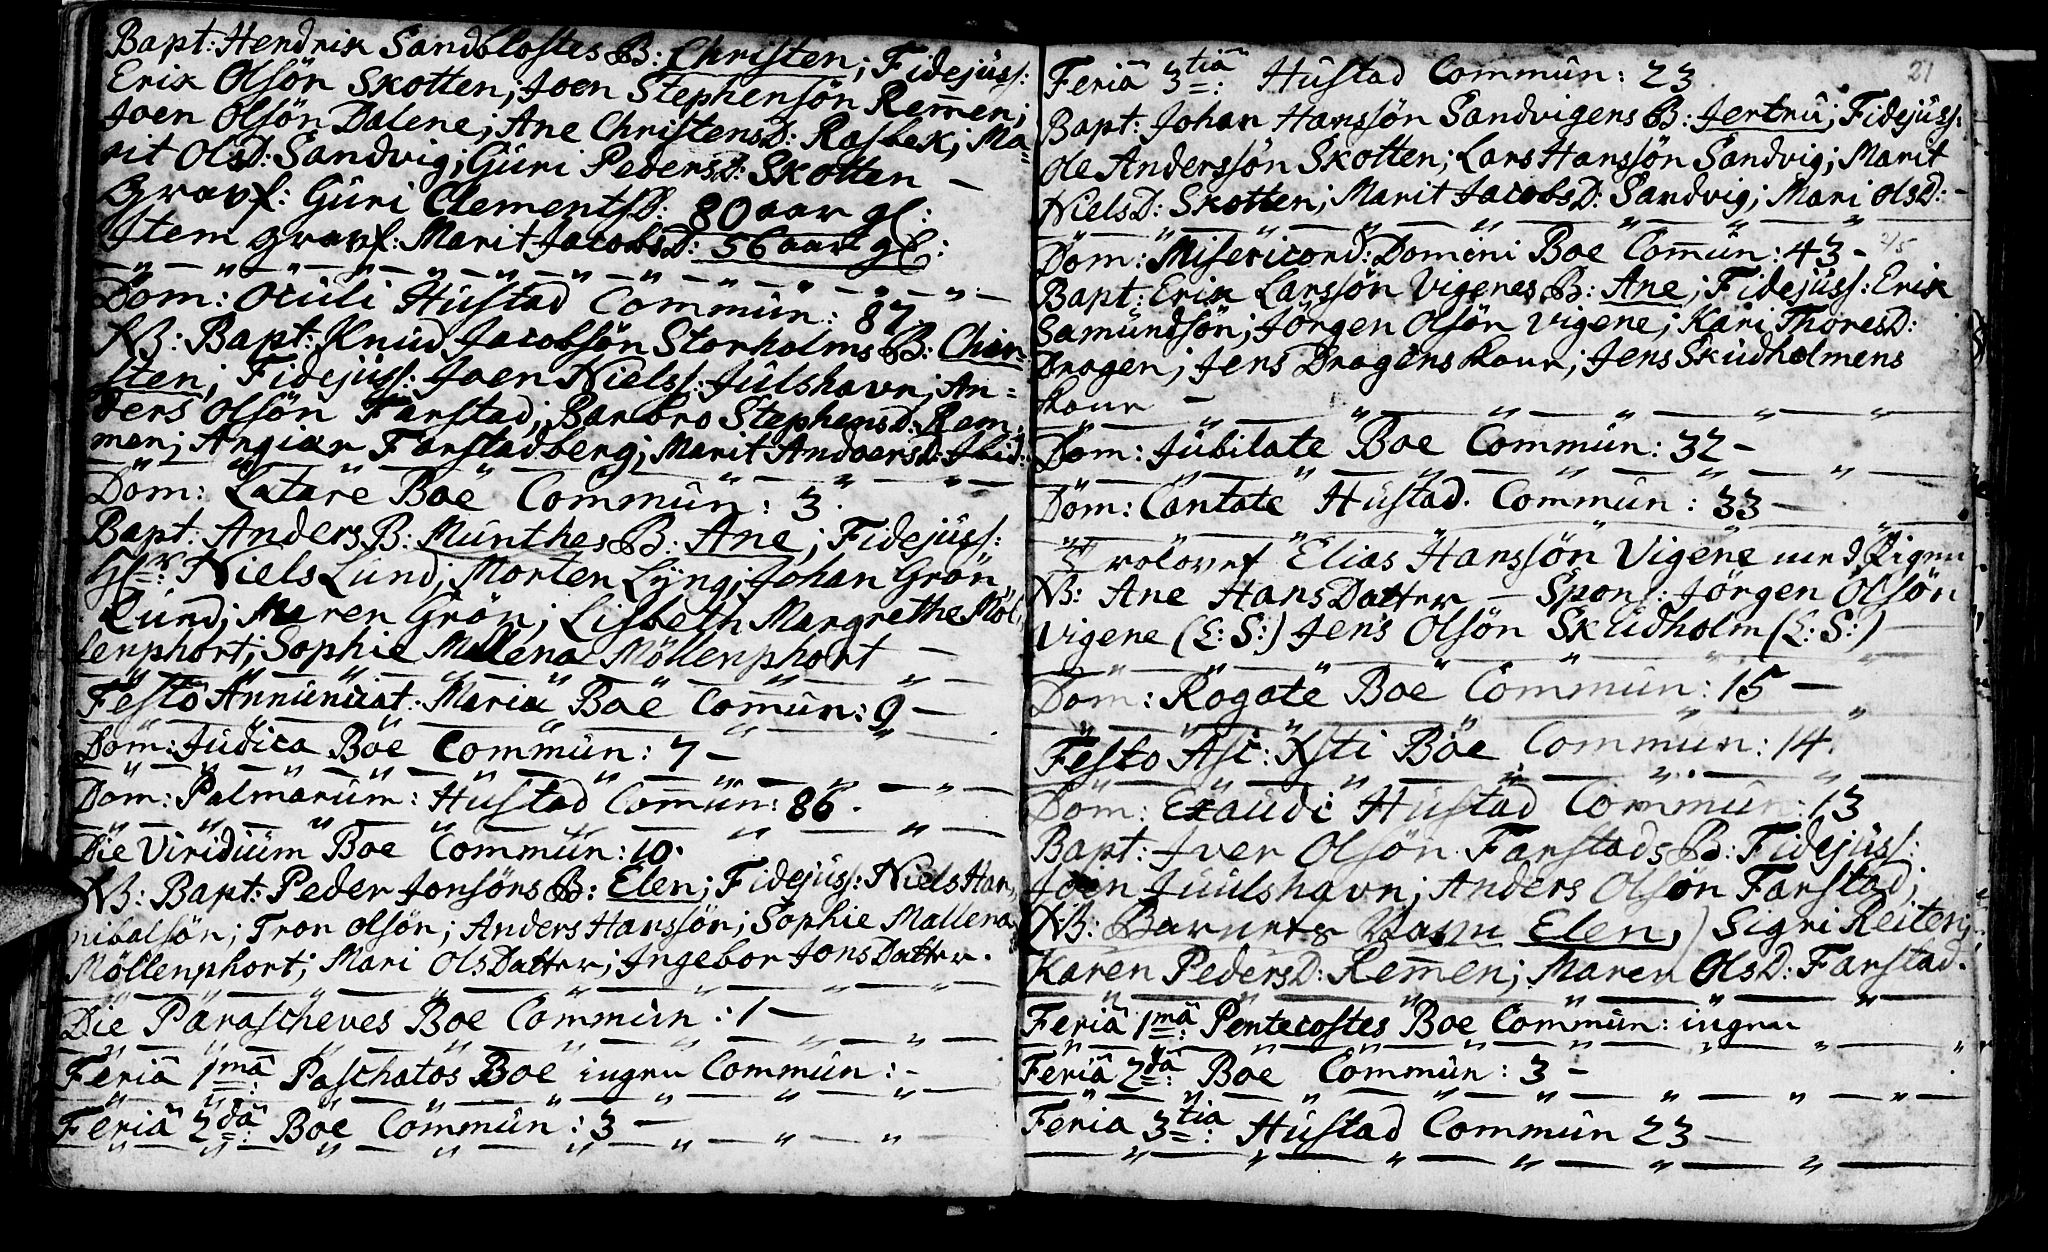 Bapt: Hendrik Sandblostes B: Christen; Fidejuss:
Erik Olsön Skotten; Joen Stephensön Rem̄en;
Joen Olsön Dalene; Ane ChristensD: Rasbek; Ma=
rit OlsD: Sandvig; Güri PedersD: Skotten —
Gravf: Güri ClementsD: 80 aar gl:
Item gravf: Marit JacobsD: 56 aar gl:
Dom: Oculi Hustad Commun: 87
NB: Bapt: Knud Jacobsön Storholms B: Chir=
sten; Fidejuss: Joen Nielss: Julshavn; An=
ders Olsön Farstad; Barbro StephensD: Rem=
men; Farstadberg; Marit AndersD: Ibid:
Dom: Lætare Boe Commun: 3.
Bapt: Anders B: Munthes B: Ane; Fidejuss:
Hr: Niels Lund; Morten Lyng; Johan Grön
Lund; Maren Grön; Lisbeth Margrethe Möl
lenphort; Sophie Mallena Möllenphort —
Festo Annunciat: Mariæ Boe Com̄un: 9 —
Dom: Judica Boe Commun: 7 —
Dom: Palmarum: Hustad Com̄un: 86.
Die Viridium Boe Commun: 10.
NB: Bapt: Peder Jonsöns B: Elen; Fidejuss: Niels Han
nibalsön; Tron Olsön; Anders Hanssön; Sophie Mallena
Möllenphort; Mari OlsDatter; Ingebor JonsDatter.
Die Parascheves Boe Commun: 1 —
Feriâ 1mâ: Paschatos Boe ingen Commun: -
Feriâ 2dâ: Boe Commun: 3 —
21
Feriâ 3tiâ: Hustad Commun: 23
Bapt: Johan Hanssön Sandvigens B: Jertru; Fidejuss:
Ole Anderssön Skotten; Lars Hanssön Sandvig; Marit
NielsD: Skotten; Marit JacobsD: Sandvig; Mari OlsD: -
Dom: Misericord: Domini Boe Com̄un: 43 - 2/5
Bapt: Erik Larssön Vigenes B: Ane; Fidejuss: Erik
Samundsön; Jörgen Olsön Vigene; Kari ThoresD:
Dragen; Jens Dragens kone; Jens Skudholmens
kone —
Dom: Jubilate Boe Commun: 32 —
Dom: Cantate Hustad. Commun: 33 —
Trolovet Elias Hanssön Vigene med Pigen
NB: Ane HansDatter — Spons: Jörgen Olsön
Vigene (L: S:) Jens Olsön Skudholm (L: S:)
Dom: Rogate Boe Commun: 15 —
Festo Asc: Xsti Boe Commun: 14.
Dom: Exaudi Hustad Commun: 13
Bapt: Iver Olsön Farstads B: Fidejuss:
Joen Juulshavn; Anders Olsön Farstad;
NB: Barnets Navn Elen,) Sigri Reiten;
Karen PedersD: Rem̄en; Maren OlsD: Farstad.
Feriâ 1mâ: Pentecostes Boe Commun: ingen
Feriâ 2dâ: Boe Commun: 3 -
Feria 3tia: Hustad Commun 23 —